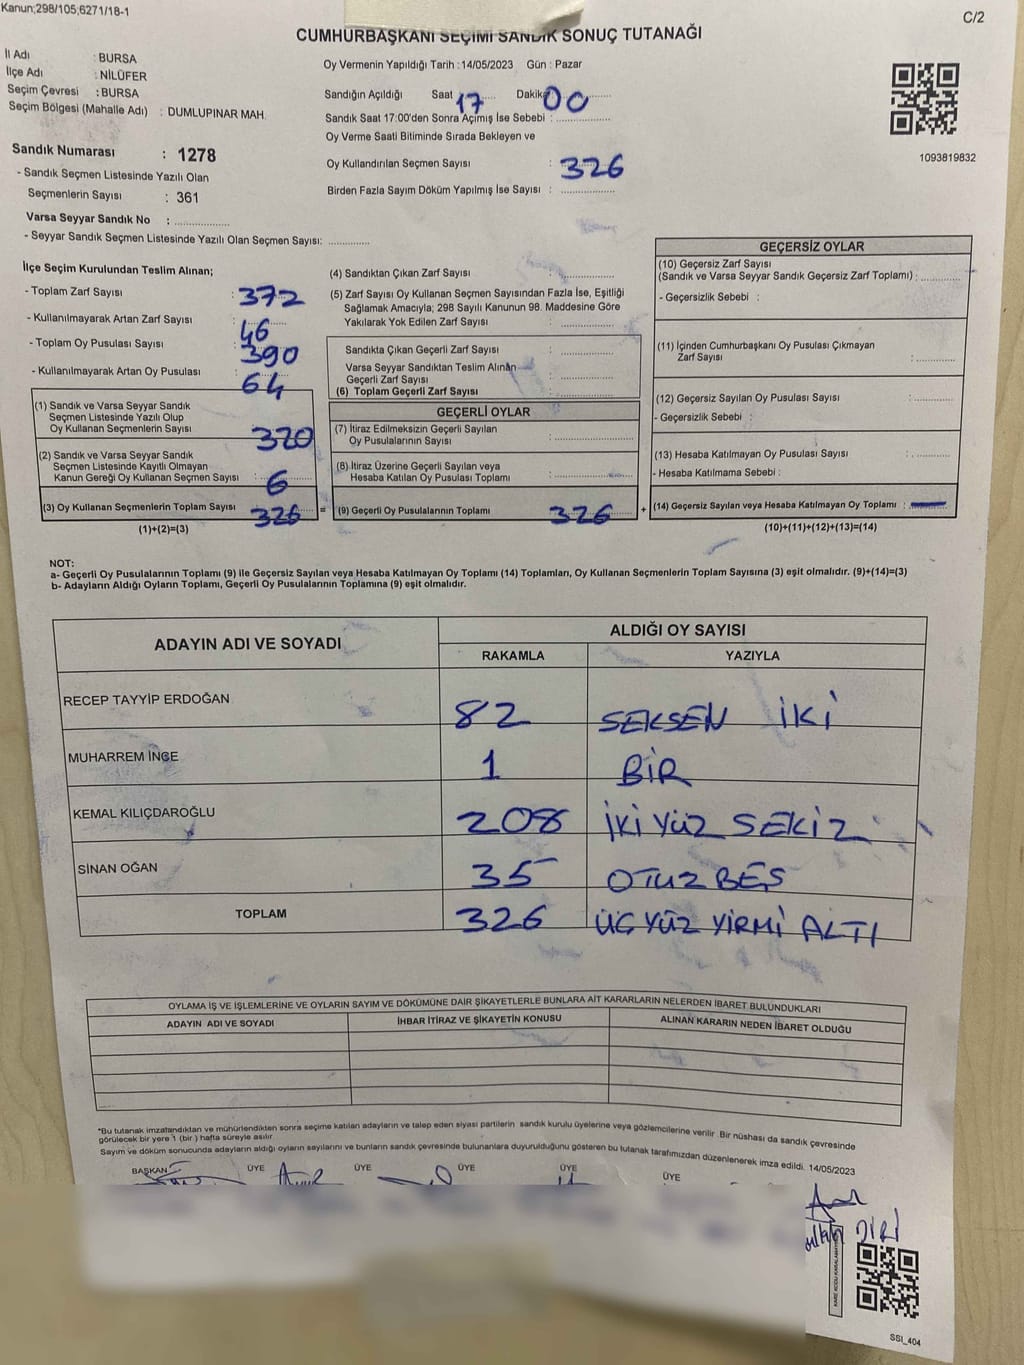 Kanun;298/105;6271/18-1
C/2
CUMHURBAŞKANI SEÇİMİ SANDIK SONUÇ TUTANAĞI
İl Adı : BURSA
İlçe Adı : NİLÜFER
Seçim Çevresi : BURSA
Seçim Bölgesi (Mahalle Adı) : DUMLUPINAR MAH.
Sandık Numarası : 1278
- Sandık Seçmen Listesinde Yazılı Olan
Seçmenlerin Sayısı : 361
Varsa Seyyar Sandık No : ....................
- Seyyar Sandık Seçmen Listesinde Yazılı Olan Seçmen Sayısı: ..............
Oy Vermenin Yapıldığı Tarih : 14/05/2023 Gün : Pazar
Sandığın Açıldığı Saat 17 Dakika 00
Sandık Saat 17:00'den Sonra Açımış İse Sebebi : ....................
Oy Verme Saati Bitiminde Sırada Bekleyen ve
Oy Kullandırılan Seçmen Sayısı : 326
Birden Fazla Sayım Döküm Yapılmış İse Sayısı : ....................
1093819832
İlçe Seçim Kurulundan Teslim Alınan;
- Toplam Zarf Sayısı : 372
- Kullanılmayarak Artan Zarf Sayısı : 46
- Toplam Oy Pusulası Sayısı : 390
- Kullanılmayarak Artan Oy Pusulası : 64
(1) Sandık ve Varsa Seyyar Sandık
Seçmen Listesinde Yazılı Olup
Oy Kullanan Seçmenlerin Sayısı : 320
(2) Sandık ve Varsa Seyyar Sandık
Seçmen Listesinde Kayıtlı Olmayan
Kanun Gereği Oy Kullanan Seçmen Sayısı : 6
(3) Oy Kullanan Seçmenlerin Toplam Sayısı : 326
(1)+(2)=(3)
(4) Sandıktan Çıkan Zarf Sayısı : ....................
(5) Zarf Sayısı Oy Kullanan Seçmen Sayısından Fazla İse, Eşitliği
Sağlamak Amacıyla; 298 Sayılı Kanunun 98. Maddesine Göre
Yakılarak Yok Edilen Zarf Sayısı : ....................
Sandıkta Çıkan Geçerli Zarf Sayısı : ....................
Varsa Seyyar Sandıktan Teslim Alınan
Geçerli Zarf Sayısı : ....................
(6) Toplam Geçerli Zarf Sayısı : ....................
GEÇERLİ OYLAR
(7) İtiraz Edilmeksizin Geçerli Sayılan
Oy Pusulalarının Sayısı : ....................
(8) İtiraz Üzerine Geçerli Sayılan veya
Hesaba Katılan Oy Pusulası Toplamı : ....................
= (9) Geçerli Oy Pusulalarının Toplamı : 326 +
GEÇERSİZ OYLAR
(10) Geçersiz Zarf Sayısı
(Sandık ve Varsa Seyyar Sandık Geçersiz Zarf Toplamı) : ..............
- Geçersizlik Sebebi :
(11) İçinden Cumhurbaşkanı Oy Pusulası Çıkmayan
Zarf Sayısı : ..............
(12) Geçersiz Sayılan Oy Pusulası Sayısı : ..............
- Geçersizlik Sebebi :
(13) Hesaba Katılmayan Oy Pusulası Sayısı : ..............
- Hesaba Katılmama Sebebi :
(14) Geçersiz Sayılan veya Hesaba Katılmayan Oy Toplamı : —
(10)+(11)+(12)+(13)=(14)
NOT:
a- Geçerli Oy Pusulalarının Toplamı (9) ile Geçersiz Sayılan veya Hesaba Katılmayan Oy Toplamı (14) Toplamları, Oy Kullanan Seçmenlerin Toplam Sayısına (3) eşit olmalıdır. (9)+(14)=(3)
b- Adayların Aldığı Oyların Toplamı, Geçerli Oy Pusulalarının Toplamına (9) eşit olmalıdır.
ADAYIN ADI VE SOYADI ALDIĞI OY SAYISI
RAKAMLA YAZIYLA
RECEP TAYYİP ERDOĞAN 82 SEKSEN İKİ
MUHARREM İNCE 1 BİR
KEMAL KILIÇDAROĞLU 208 İKİ YÜZ SEKİZ
SİNAN OĞAN 35 OTUZ BEŞ
TOPLAM 326 ÜÇ YÜZ YİRMİ ALTI
OYLAMA İŞ VE İŞLEMLERİNE VE OYLARIN SAYIM VE DÖKÜMÜNE DAİR ŞİKAYETLERLE BUNLARA AİT KARARLARIN NELERDEN İBARET BULUNDUKLARI
ADAYIN ADI VE SOYADI İHBAR İTİRAZ VE ŞİKAYETİN KONUSU ALINAN KARARIN NEDEN İBARET OLDUĞU
*Bu tutanak imzalandıktan ve mühürlendikten sonra seçime katılan adayların ve talep eden siyasi partilerin sandık kurulu üyelerine veya gözlemcilerine verilir. Bir nüshası da sandık çevresinde
görülecek bir yere 1 (bir ) hafta süreyle asılır.
Sayım ve döküm sonucunda adayların aldığı oyların sayılarını ve bunların sandık çevresinde bulunanlara duyurulduğunu gösteren bu tutanak tarafımızdan düzenlenerek imza edildi. 14/05/2023
BAŞKAN ÜYE ÜYE ÜYE ÜYE ÜYE
DİRİ
SSİ_404